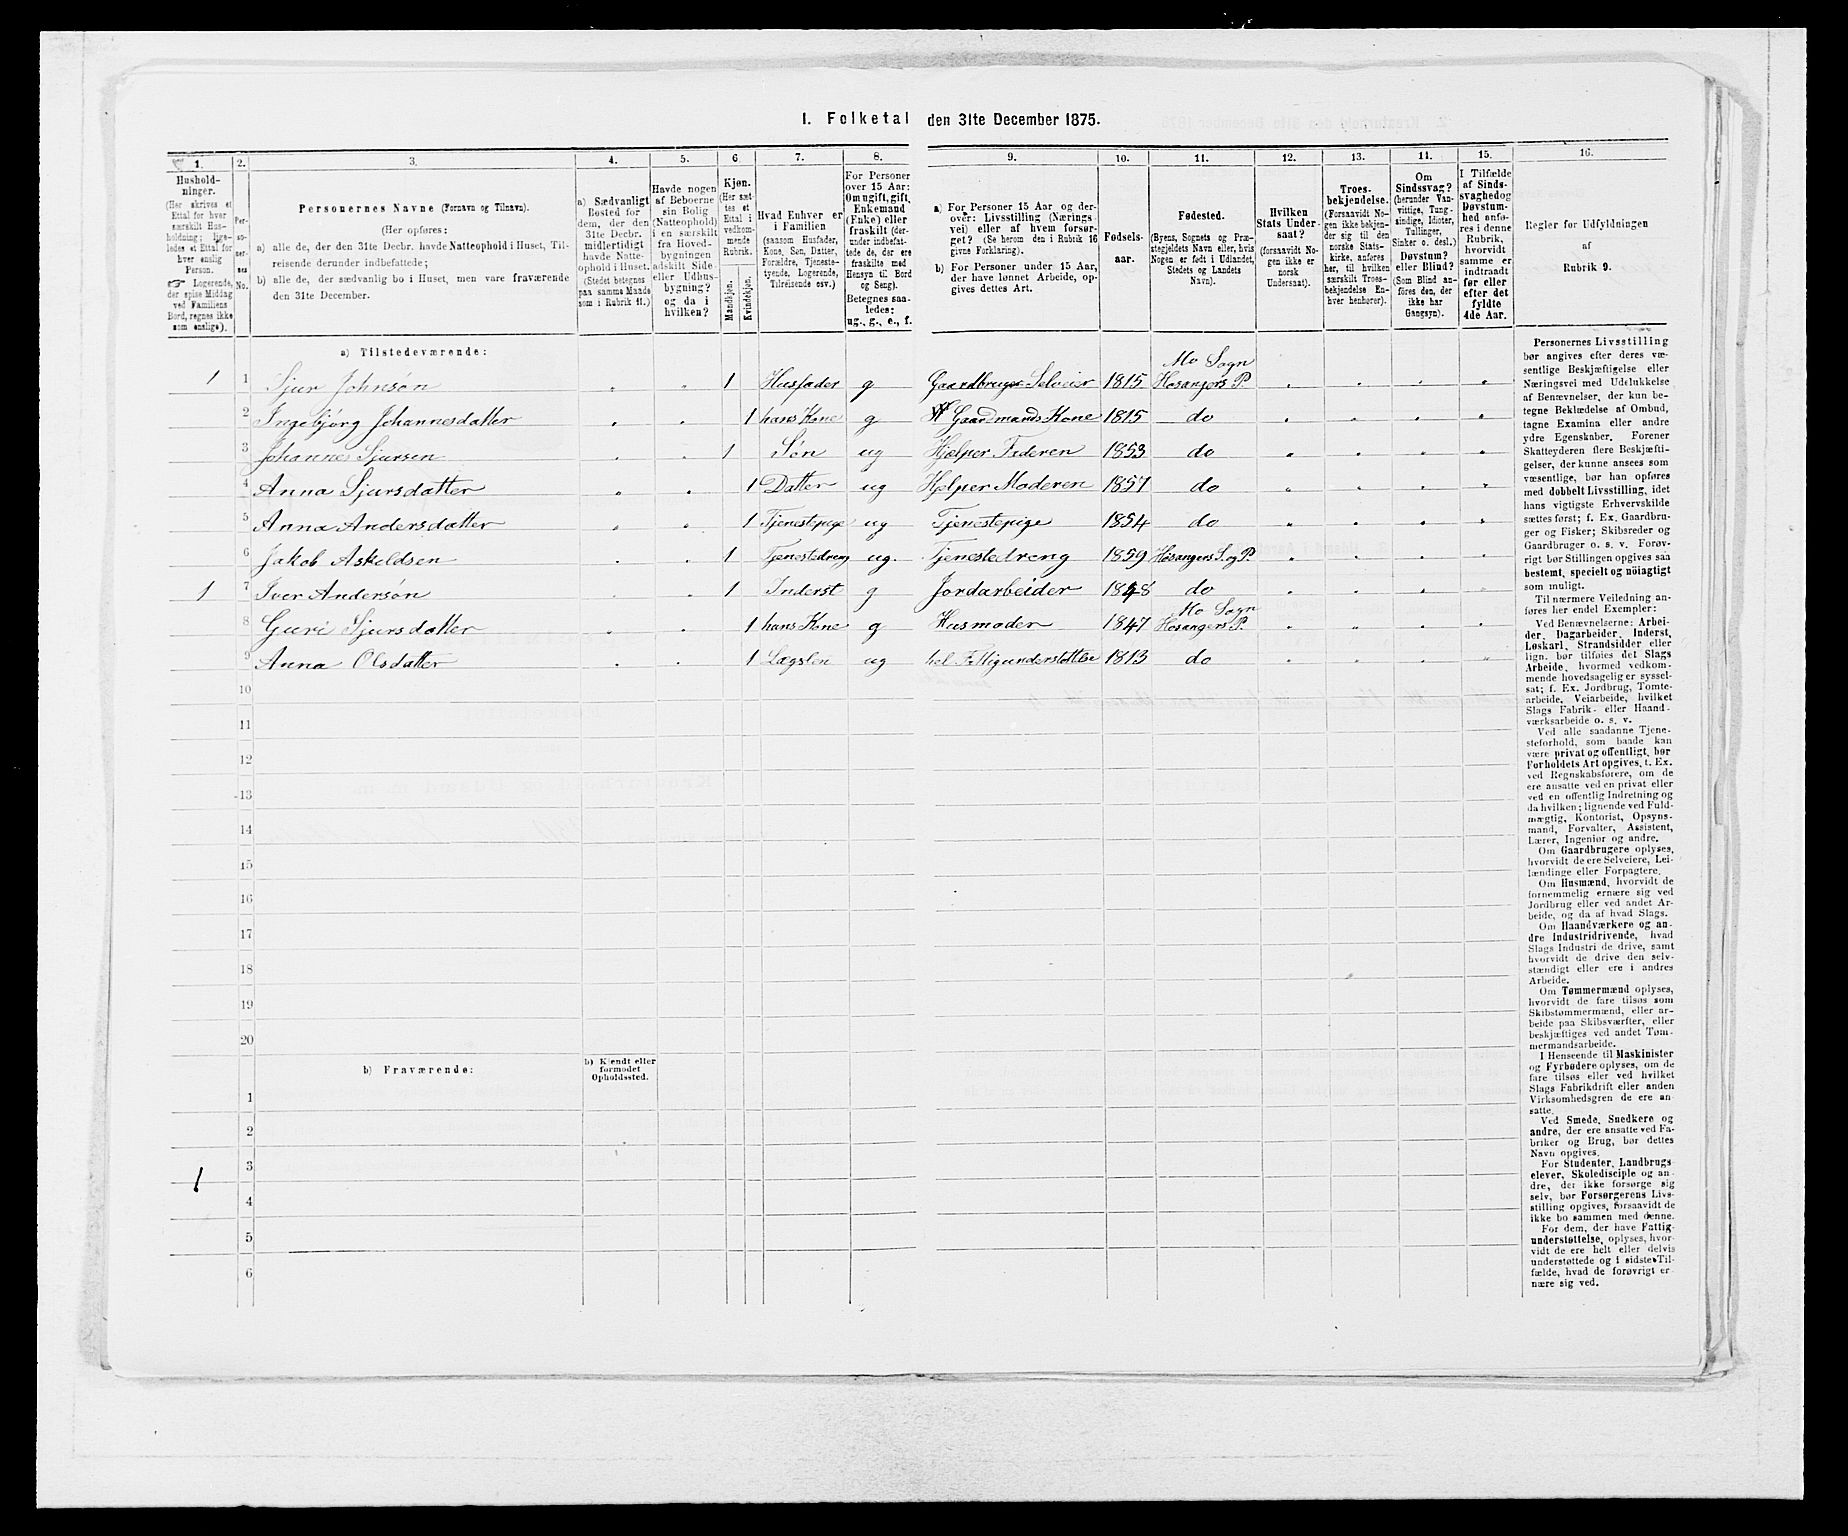 I. Folketal den 31te December 1875.
1. 2. 3. 4. 5. 6. 7. 8. 9. 10. 11. 12. 13. 14. 15. 16.
Hushold-
ninger.
(Her skrives et
Ettal for hver
særskilt Hus-
holdning; lige-
ledes et Ettal for
hver enslig
Person.
☞ Logerende,
der spise Middag
ved Familiens
Bord, regnes ikke
som enslige).
Per-
so-
ner-
nes
No.
Personernes Navne (Fornavn og Tilnavn).
(Her opføres:
a) alle de, der den 31te Decbr. havde Natteophold i Huset, Til-
reisende derunder indbefattede;
b) alle de, der sædvanlig bo i Huset, men vare fraværende
den 31te December.
a) Sædvanligt
Bosted for
dem, der den
31te Decbr.
midlertidigt
havde Natte-
ophold i Huset.
(Stedet betegnes
paa samme Maade
som i Rubrik 11.)
Havde nogen
af Beboerne
sin Bolig
(Natteophold)
i en særskilt
fra Hoved-
bygningen
adskilt Side-
eller Udhus-
bygning?
og da i
hvilken?
Kjøn.
(Her sæt-
tes et
Ettal i
vedkom-
mende
Rubrik.
Mandkjøn.
Kvindekjøn.
Hvad Enhver er
i Familien
(saasom Husfader,
Kone, Søn, Datter,
Forældre, Tjeneste-
tyende, Logerende,
Tilreisende osv.)
For Personer
over 15 Aar:
Om ugift, gift,
Enkemand
(Enke) eller
fraskilt (der-
under indbefat-
tede de, der ere
fraskilte med
Hensyn til Bord
og Seng).
Betegnes saa-
ledes:
ug., g., e., f.
a) For Personer 15 Aar og der-
over: Livsstilling (Nærings-
vei) eller af hvem forsør-
get? (Se herom den i Rubrik 16
givne Forklaring).
b) For Personer under 15 Aar,
der have lønnet Arbeide, op-
gives dettes Art.
Fødsels-
aar.
Fødested.
(Byens, Sognets og Præ-
stegjeldets Navn eller, hvis
Nogen er født i Udlandet,
Stedets og Landets
Navn).
Hvilken
Stats Under-
saat?
(forsaavidt No-
gen ikke er
norsk
Undersaat).
Troes-
bekjendelse.
(Forsaavidt No-
gen ikke bekjen-
der sig til den
norske Stats-
kirke, anføres
her, til hvilken
særskilt Troes-
bekjendelse En-
hver henhører).
Om
Sindssvag?
(herunder Van-
vittige, Tung-
sindige, Idioter,
Tullinger,
Sinker o. desl.)
Døvstum?
eller Blind?
(Som Blind an-
føres den, der
ikke har
Gangsyn).
I Tilfælde
af Sinds-
svaghed og
Døvstum-
hed anfø-
res i denne
Rubrik,
hvorvidt
samme er
indtraadt
før eller
efter det
fyldte
4de Aar.
Regler for Udfyldningen
af
Rubrik 9.
a) Tilstedeværende:
1 1 Sjur Johnsøn 1 Husfader g Gaardbruger Selveier 1815 Mo Sogn Hosangers P.
2 Ingebjörg Johannesdatter 1 hans Kone g Gaardmands Kone 1815 do
3 Johannes Sjursen 1 Søn ug Hjælper Faderen 1853 do
4 Anna Sjursdatter 1 Datter ug Hjelper Moderen 1857 do
5 Anna Andersdatter 1 Tjenestepige ug Tjenestepige 1854 do
6 Jakob Askeldsen 1 Tjenestedreng ug. Tjenestedreng 1859 Hosangers S. og P.
1 7 Iver Andersøn 1 Inderst g Jordarbeider 1848 do
8 Guri Sjursdatter 1 hans Kone g Husmoder 1847 Mo Sogn Hosangers P.
9 Anna Olsdatter 1 Lægslem ug hel Fattigunderstøttelse 1813 do
10
11
12
13
14
15
16
17
18
19
20
b) Fraværende:
b) Kjendt eller
formodet
Opholdssted.
1
2
3
1
4
5
6
Personernes Livsstilling
bør angives efter deres væ-
sentlige Beskjæftigelse eller
Næringsvei med Udelukkelse
af Benævnelser, der kun be-
tegne Beklædelse af Ombud,
tagne Examina eller andre
ydre Egenskaber. Forener
Skatteyderen flere Beskjæfti-
gelser, der kunne ansees som
væsentlige, bør han opføres
med dobbelt Livsstilling, idet
hans vigtigste Erhvervskilde
sættes først; f. Ex. Gaardbru-
ger og Fisker; Skibsreder og
Gaardbruger o. s. v. Forøv-
rigt bør Stillingen opgives saa
bestemt, specielt og nöiagtigt
som muligt.
Til nærmere Veiledning an-
føres her endel Exempler:
Ved Benævnelserne: Arbei-
der, Dagarbeider, Inderst,
Løskarl, Strandsidder eller
lign. bør tilføies det Slags
Arbeide, hvormed vedkom-
mende hovedsagelig er syssel-
sat; f. Ex. Jordbrug, Tomte-
arbeide, Veiarbeide, hvilket
Slags Fabrik- eller Haand-
værksarbeide o. s. v.
Ved alle saadanne Tjene-
steforhold, som baade kan
være privat og offentligt, bør
Forholdets Art opgives, t. Ex.
ved Regnskabsførere, om de
ere ansatte ved en privat eller
ved en offentlig Indretning og
da hvilken; lignende ved Fuld-
mægtig, Kontorist, Opsyns-
mand, Forvalter, Assistent,
Lærer, Ingeniør og andre.
Om Gaardbrugere oplyses,
hvorvidt de ere Selveiere, Lei-
lændinge eller Forpagtere.
Om Husmænd, hvorvidt de
fornemmelig ernære sig ved
Jordbrug eller ved andet Ar-
beide, og da af hvad Slags.
Om Haandværkere og an-
dre Industridrivende, hvad
Slags Industri de drive, samt
hvorvidt de drive den selv-
stændigt eller ere i andres
Arbeide.
Om Tømmermænd oplyses,
hvorvidt de fare tilsøs som
Skibstømmermænd, eller ar-
beide paa Skibsværfter, eller
beskjæftiges ved andet Tøm-
mermandsarbeide.
I Henseende til Maskinister
og Fyrbødere oplyses, om de
fare tilsøs eller ved hvilket
Slags Fabrikdrift eller anden
Virksomhedsgren de ere an-
satte.
Ved Smede, Snedkere og
andre, der ere ansatte ved Fa-
briker og Brug, bør dettes
Navn opgives.
For Studenter, Landbrugs-
elever, Skoledisciple og an-
dre, der ikke forsørge sig
selv, bør Forsørgerens Livs-
stilling opgives, forsaavidt de
ikke bo sammen med denne.
For dem, der have Fattig-
understøttelse, oplyses, hvor-
vidt de ere helt eller delvis
understøttede og i sidste Til-
fælde, hvad de forøvrigt er-
nære sig ved.